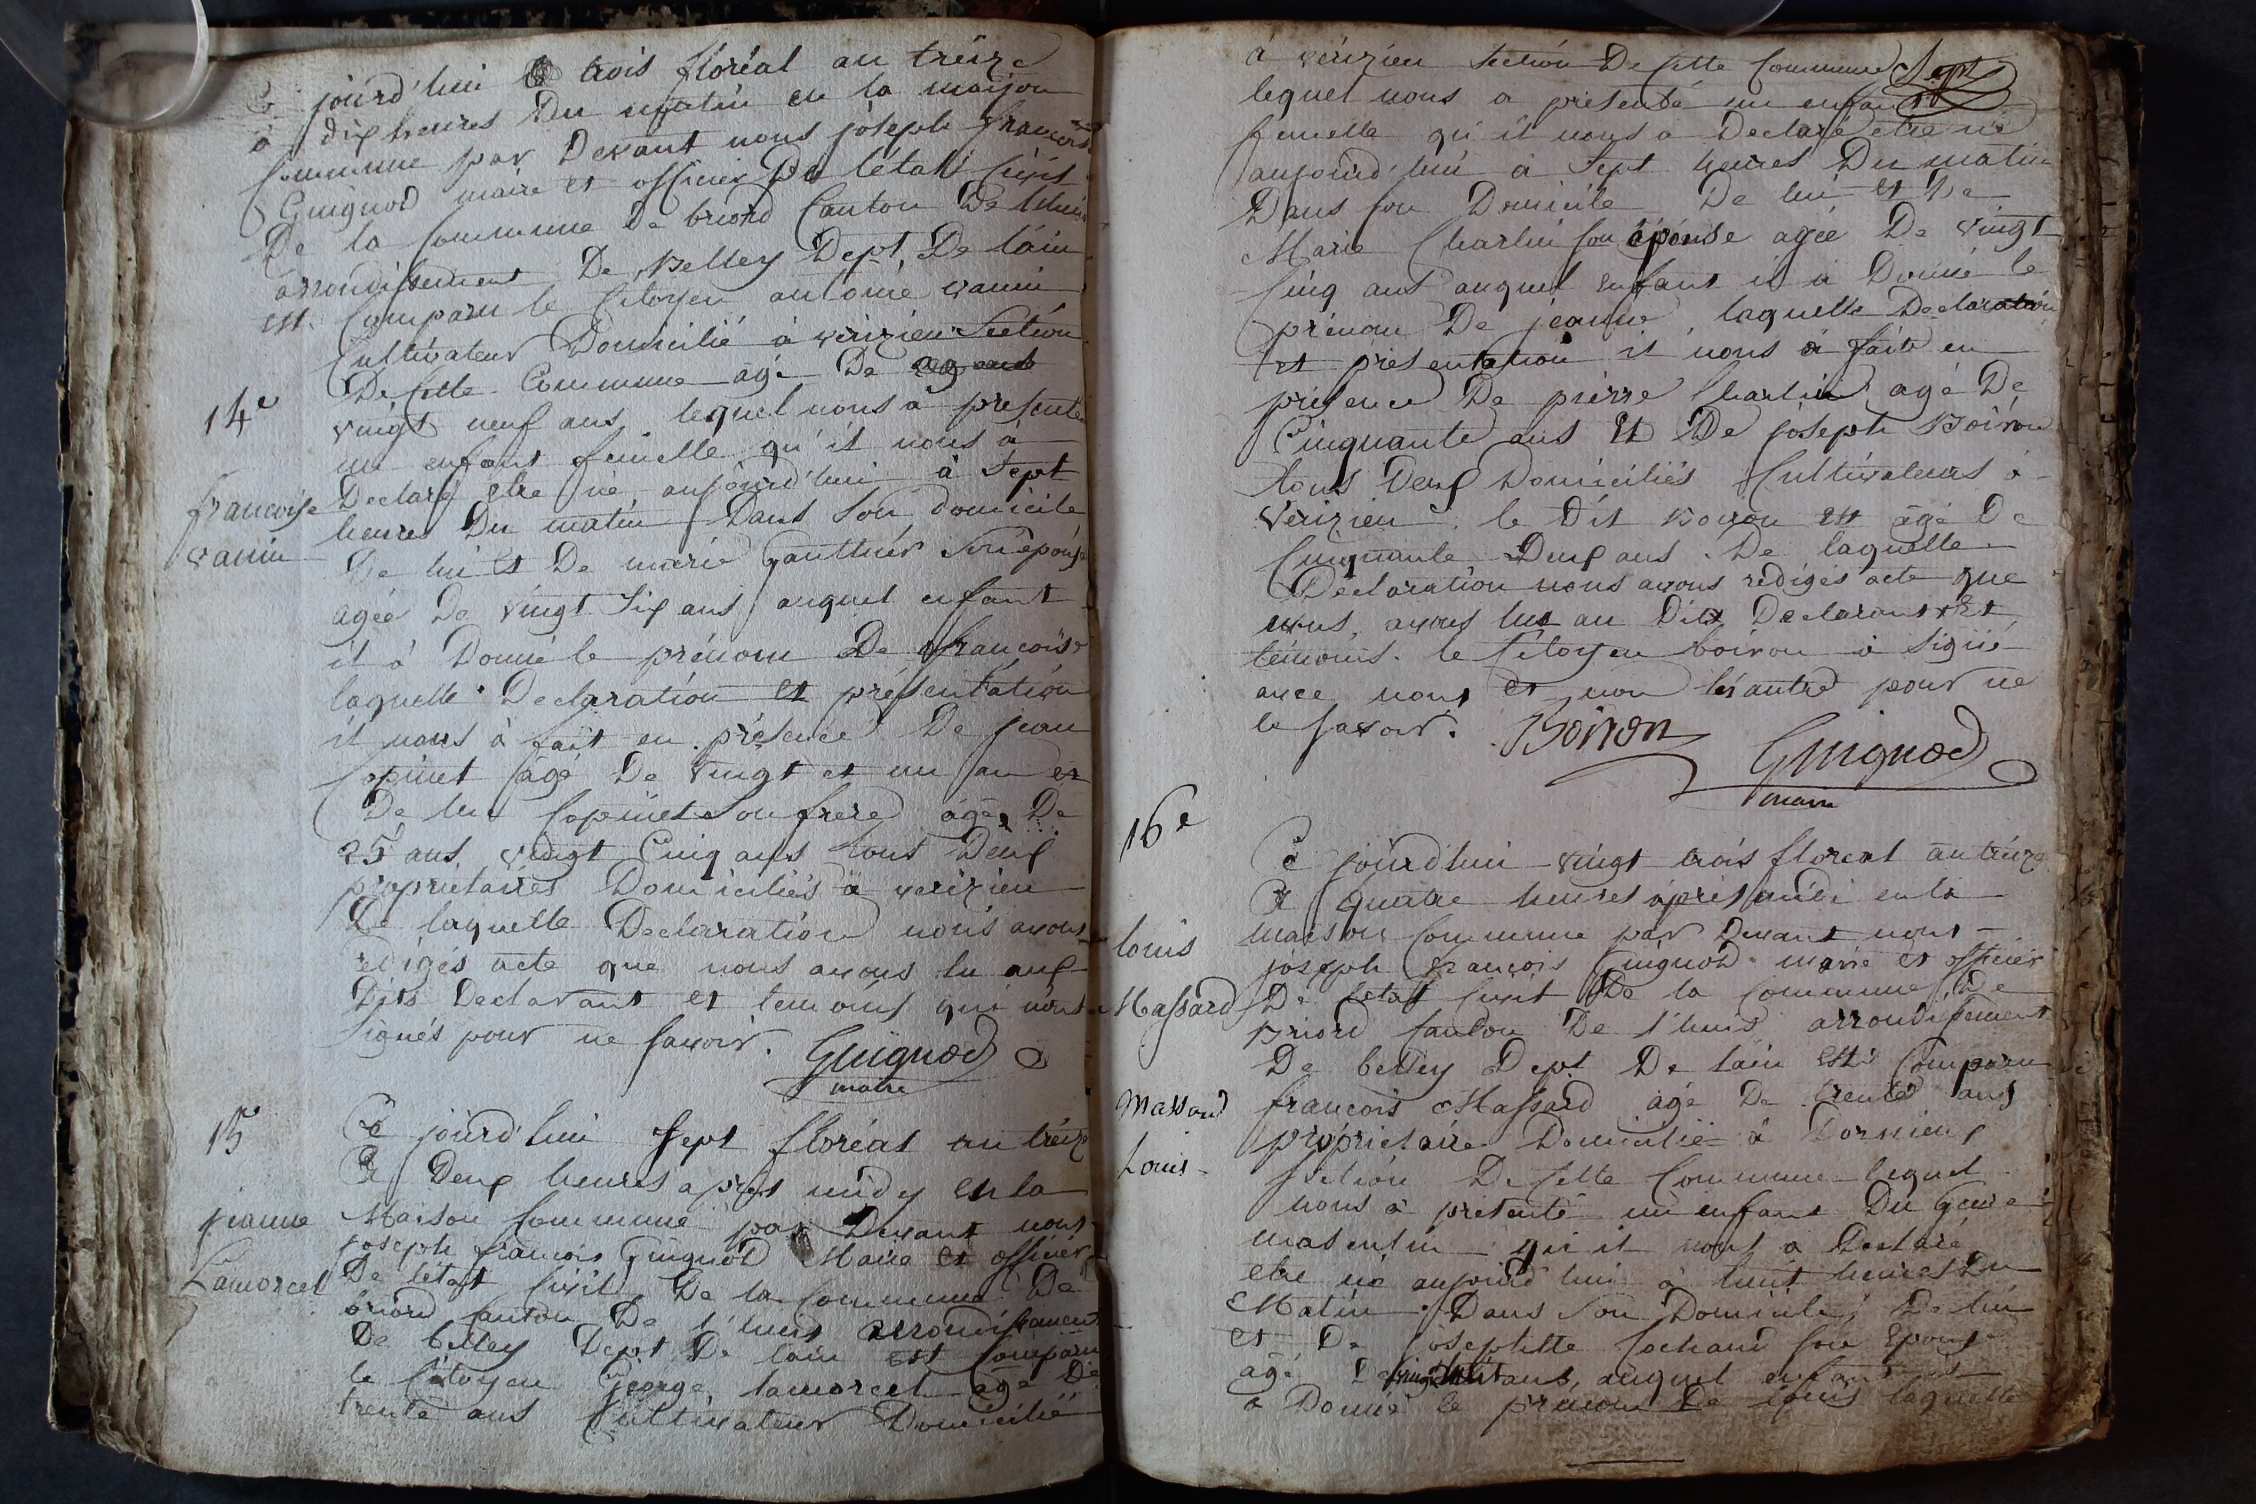 Ce jourd'hui le trois floréal an treize
à dix heures Du matin en la maison
Commune par Devant nous joseph françois
Guignod maire et officier De l'état Civil
De la Commune De briord Canton De lhuis
arrondissement De Belley Dept De l'ain
est Comparu le Citoyen antoine vanin
Cultivateur Domicilié à verizieu Section
De Cette Commune agé De
14e
vingt neuf ans lequel nous à presenté
un enfant femelle qu'il nous à
francoise
vanin
Declaré etre né aujourd'hui à Sept
heures Du matin Dans Son domicile
De lui et De marie Gauthier Son épouse
agée De vingt Six ans auquel enfant
il à Donné le prénom De francoise
laquelle Declaration et présentation
il nous à fait en présence De jean
Copinet agé De vingt et un an et
De Copinet Son frere agé De
25 ans vingt Cinq ans tous Deux
propriétaires Domiciliés à verizieu
De laquelle Declaration nous avons
redigés acte que nous avons lu aux
Dits Declarant et temoins qui n'ont
Signés pour ne Savoir. Guignod
maire
15e
Ce jourd'hui Sept floréal an treize
à Deux heures apres midy en la
jeanne
Lamorcel
Maison Commune par Devant nous
joseph francois Guignod Maire et officier
De l'état Civil De la Commune De
briord Canton De l'huis arrondissement
De belley Dept De l'ain est Comparu
le Citoyen George lamorcel agé De
trente ans Cultivateur Domicilié
Sept
à vérizieu Section De Cette Commune
lequel nous a présenté un enfant
femelle qu'il nous a Declaré etre né
aujourd'hui à Sept heures Du matin
Dans son Domicile De lui et De
Marie Charlin son épouse agée De vingt
Cinq ans auquel enfant il à Donné le
prénom De jeanne laquelle Declaration
et présentation il nous à faite en
présence De pierre Charlin agé De
Cinquante ans Et De joseph Boiron
tous Deux Domiciliés Cultivateurs à
verizieu le Dit Boiron est agé De
Cinquante Deux ans De laquelle
Declaration nous avons redigés acte que
nous avons lue au Dits Declarant Et
témoins. le Citoyen boiron à Signé
avec nous et non les autre pour ne
le Savoir. Boiron Guignod
maire
16e
Ce jourd'hui vingt trois floreal an treize
à quatre heures après midi en la
louis
Massard
Massard
Louis
maison Commune par Devant nous
joseph françois Guignod maire et officier
De l'etat Civil De la Commune De
Briord Canton De l'huis arrondissement
De belley Dept De l'ain est Comparu
francois Massard agé De trente ans
propriétaire Domicilié à Dornieux
Section De Cette Commune lequel
nous à présenté un enfant Du genre
masculin qu'il nous a Declaré
etre né aujourd'hui à huit heures Du
Matin Dans Son Domicile De lui
et De josephtte Cochand Son Epouse
agé De vingt huit ans, auquel enfant il
à Donné le prénom De louis laquelle